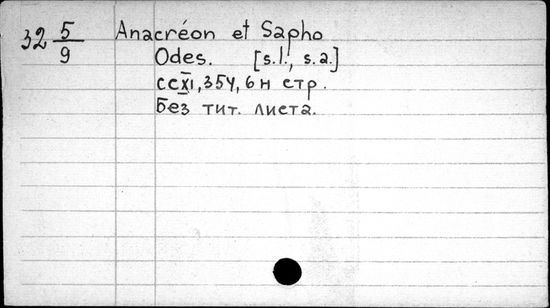 32 5/9 Anacréon et Sapho
Odes. [s.l., s.a.]
CCXI, 354, 6 н стр.
Без тит. листа.